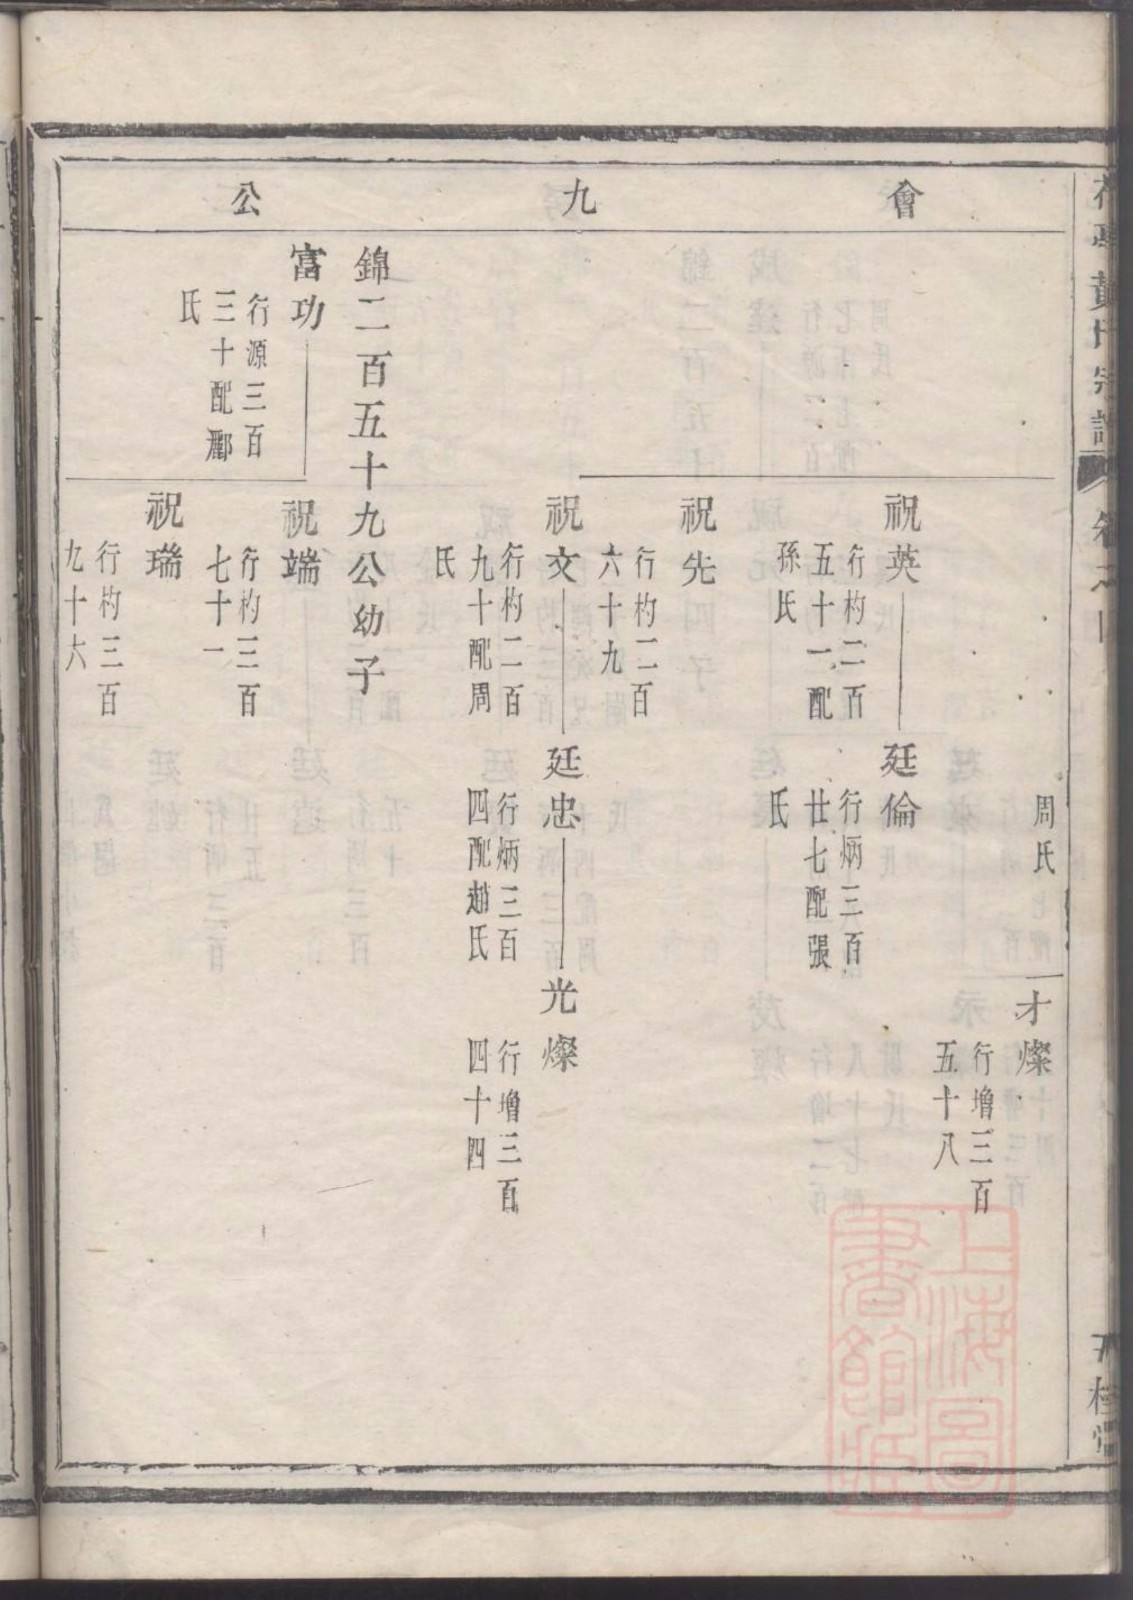 會九公
周氏
才燦
行增三百
五十八
祝英
行杓二百
五十一配
孫氏
廷倫
行炳三百
廿七配張
氏
祝先
行杓二百
六十九
祝文
行杓二百
九十配周
氏
廷忠
行炳三百
四配趙氏
光燦
行增三百
四十四
錦二百五十九公幼子
富功
行源三百
三十配酈
氏
祝端
行杓三百
七十一
祝瑞
行杓三百
九十六
黃氏宗譜
卷之四
五桂堂
上海圖
書館藏